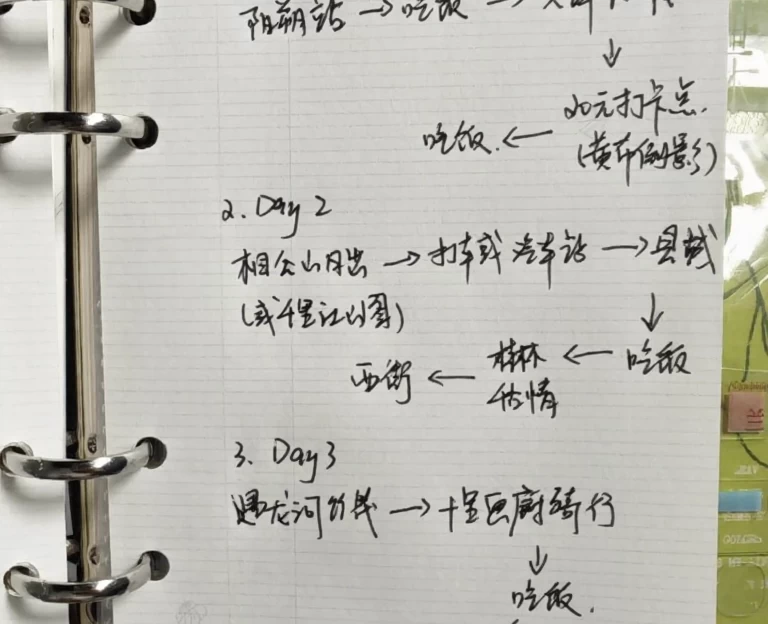 阳朔站 → 吃饭 →
↓
20元打卡点.
吃饭. ← (黄布倒影)
2. Day 2
相公山日出 → 打车或汽车站 → 县城
(或千里江山图)
↓
西街 ← 桂林 ← 吃饭
千古情
3. Day 3
遇龙河竹筏 → 十里画廊骑行
↓
吃饭.